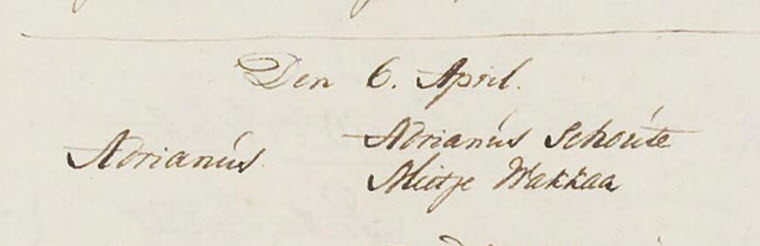 Den 6. April.
Adrianús Adrianús Schoúte
Mietje Wakkaa